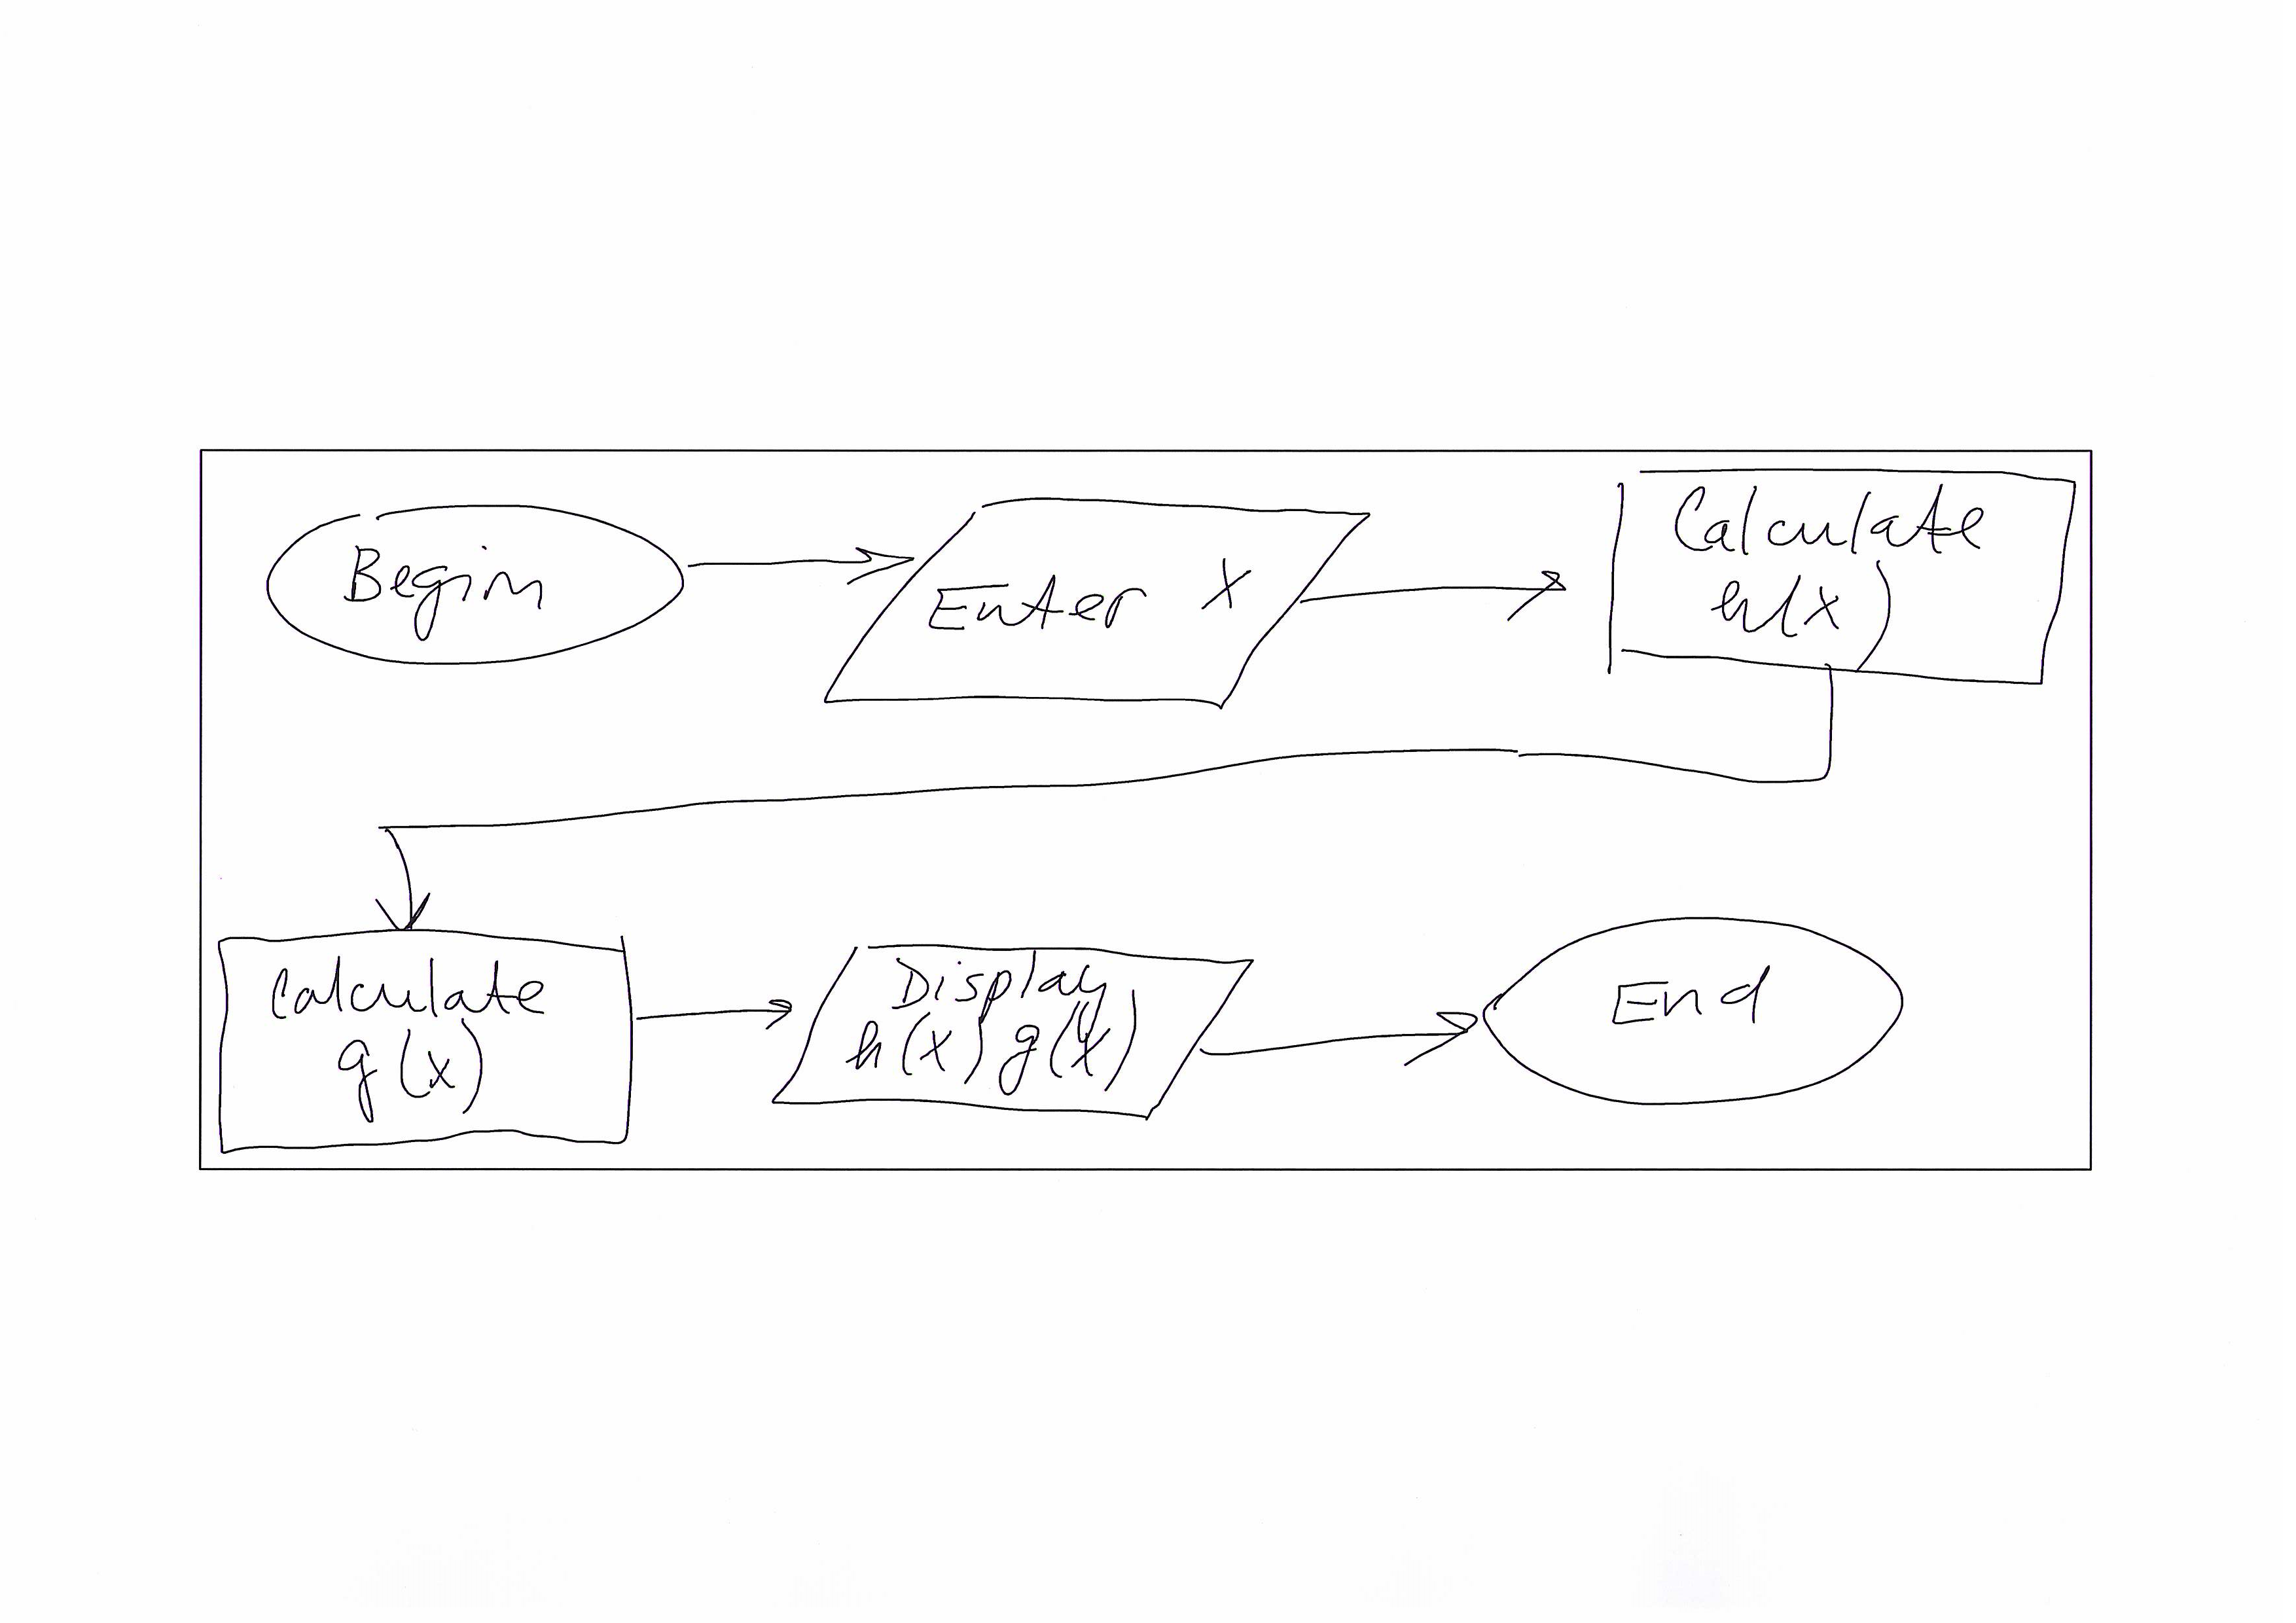 Begin
Enter X
Calculate
h(x)
Calculate
g(x)
Display
h(x) g(x)
End